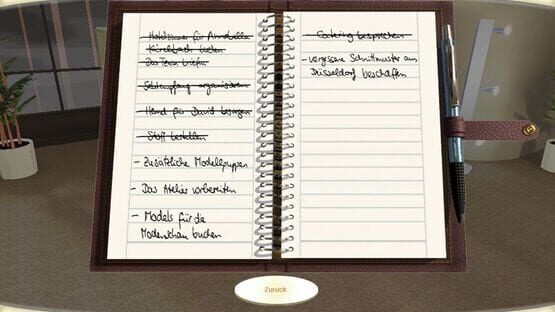 - Hotelzimmer für Annabelle
Kürelbach beten
- Das Team briefen
- Sektempfang organisieren
- Hemd für David besorgen
- Stoff bestellen
- Zusätzliche Modellpuppen
- Das Atelier vorbereiten
- Models für die
Modenschau buchen
- Catering besprechen
- vergessene Schnittmuster aus
Düsseldorf beschaffen
Zurück